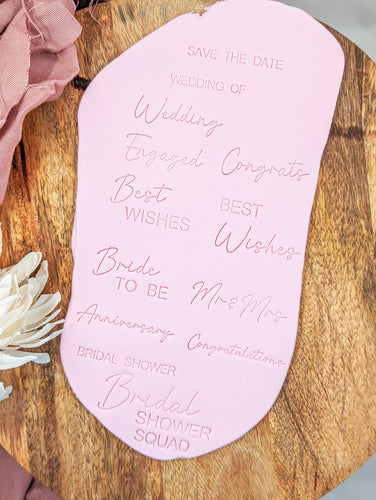 SAVE THE DATE
WEDDING OF
Wedding
Engaged Congrats
Best
WISHES
BEST
Wishes
Bride
TO BE
Mr & Mrs
Anniversary
Congratulations
BRIDAL SHOWER
Bridal
SHOWER
SQUAD